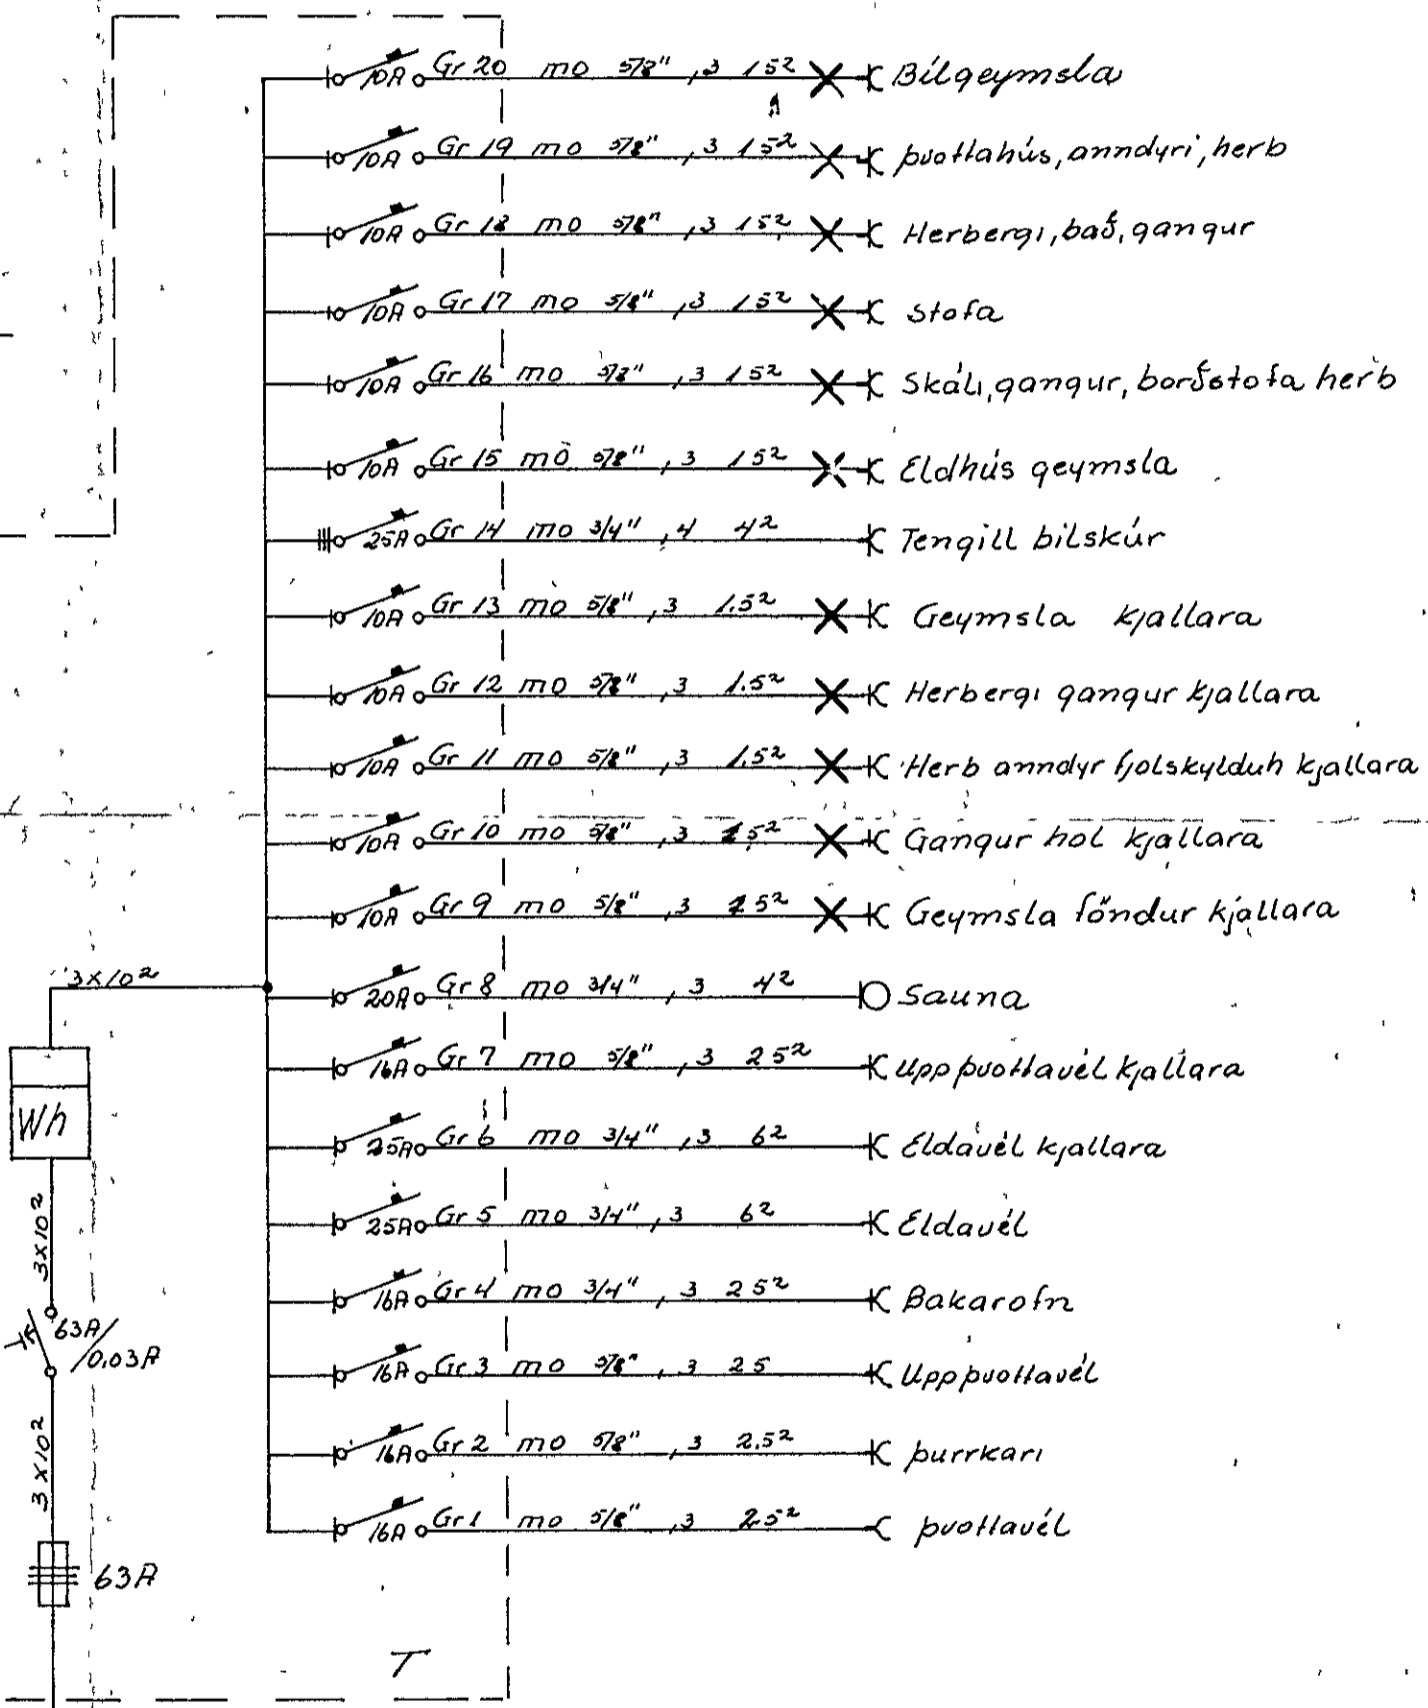 10A Gr 20 mo 5/8", 3 1 5² Bílgeymsla
10A Gr 19 mo 5/8", 3 1 5² þvottahús, anndyri, herb
10A Gr 18 mo 5/8", 3 1 5² Herbergi, bað, gangur
10A Gr 17 mo 5/8", 3 1 5² Stofa
10A Gr 16 mo 5/8", 3 1 5² Skáli, gangur, borðstofa herb
10A Gr 15 mo 5/8", 3 1 5² Eldhús geymsla
25A Gr 14 mo 3/4", 4 4² Tengill bilskúr
10A Gr 13 mo 5/8", 3 1.5² Geymsla kjallara
10A Gr 12 mo 5/8", 3 1.5² Herbergi gangur kjallara
10A Gr 11 mo 5/8", 3 1.5² Herb anndyr fjolskylduh kjallara
10A Gr 10 mo 5/8", 3 5² Gangur hol kjallara
10A Gr 9 mo 5/8", 3 5² Geymsla föndur kjallara
3x10²
20A Gr 8 mo 3/4", 3 4² Sauna
16A Gr 7 mo 5/8", 3 2 5² Uppþvottavél kjallara
Wh
25A Gr 6 mo 3/4", 3 6² Eldavél kjallara
3x10²
25A Gr 5 mo 3/4", 3 6² Eldavél
16A Gr 4 mo 3/4", 3 2 5² Bakarofn
63A/0,03A
16A Gr 3 mo 5/8", 3 2 5 Uppþvottavél
3x10²
16A Gr 2 mo 5/8", 3 2.5² þurrkari
16A Gr 1 mo 5/8", 3 2.5² þvottavél
63A
T